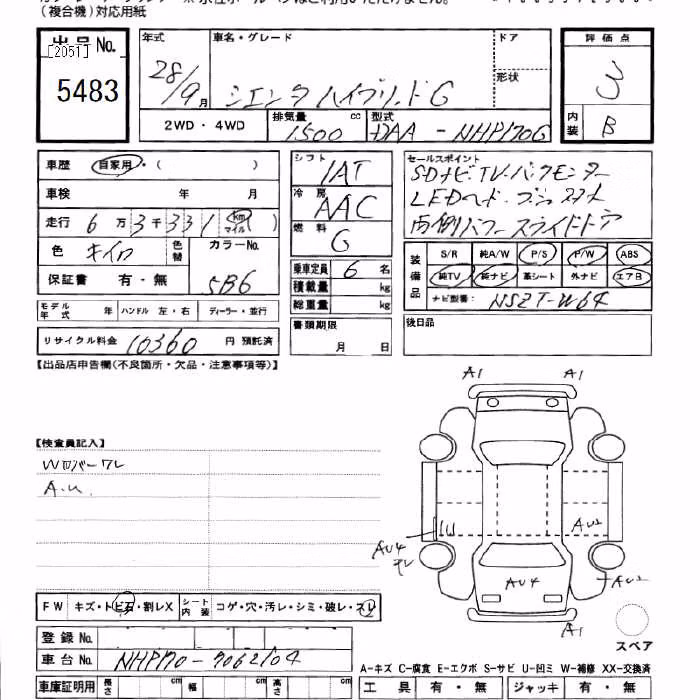 (複合機)対応用紙
出品No.
[2051]
5483
年式 車名・グレード ドア
28/9月 シエンタハイブリッドG 形状
評価点
3
内装 B
2WD・4WD 排気量 1500 cc 型式 DAA-NHP170G
車歴 自家用・( )
車検 年 月
走行 6万3千331(km マイル)
色 キイロ 色替 カラーNo. 5B6
保証書 有・無
モデル年式 年 ハンドル 左・右 ディーラー・並行
リサイクル料金 10360 円 預託済
シフト IAT
冷房 AAC
燃料 G
乗車定員 6 名
積載量 kg
総重量 kg
書類期限
月 日
セールスポイント
SDナビ・TV・バックモニター
LEDヘッド・プッシュスタート
両側パワースライドドア
装備品 S/R 純A/W P/S P/W ABS
純TV 純ナビ 革シート 外ナビ エアB
ナビ型番: NSZT-W64
後日品
【出品店申告欄(不良箇所・欠品・注意事項等)】
【検査員記入】
A.U.
A1 A1
AU4
AU2
AU4
AU2
A1
スペア
FW キズ・トビ石・割レX シート内装 コゲ・穴・汚レ・シミ・破レ・スレ
登録No.
車台No. NHP170-7062104
車庫証明用 長さ cm 幅 cm 高さ cm
A-キズ C-腐食 E-エクボ S-サビ U-凹ミ W-補修 XX-交換済
工具 有・無 ジャッキ 有・無